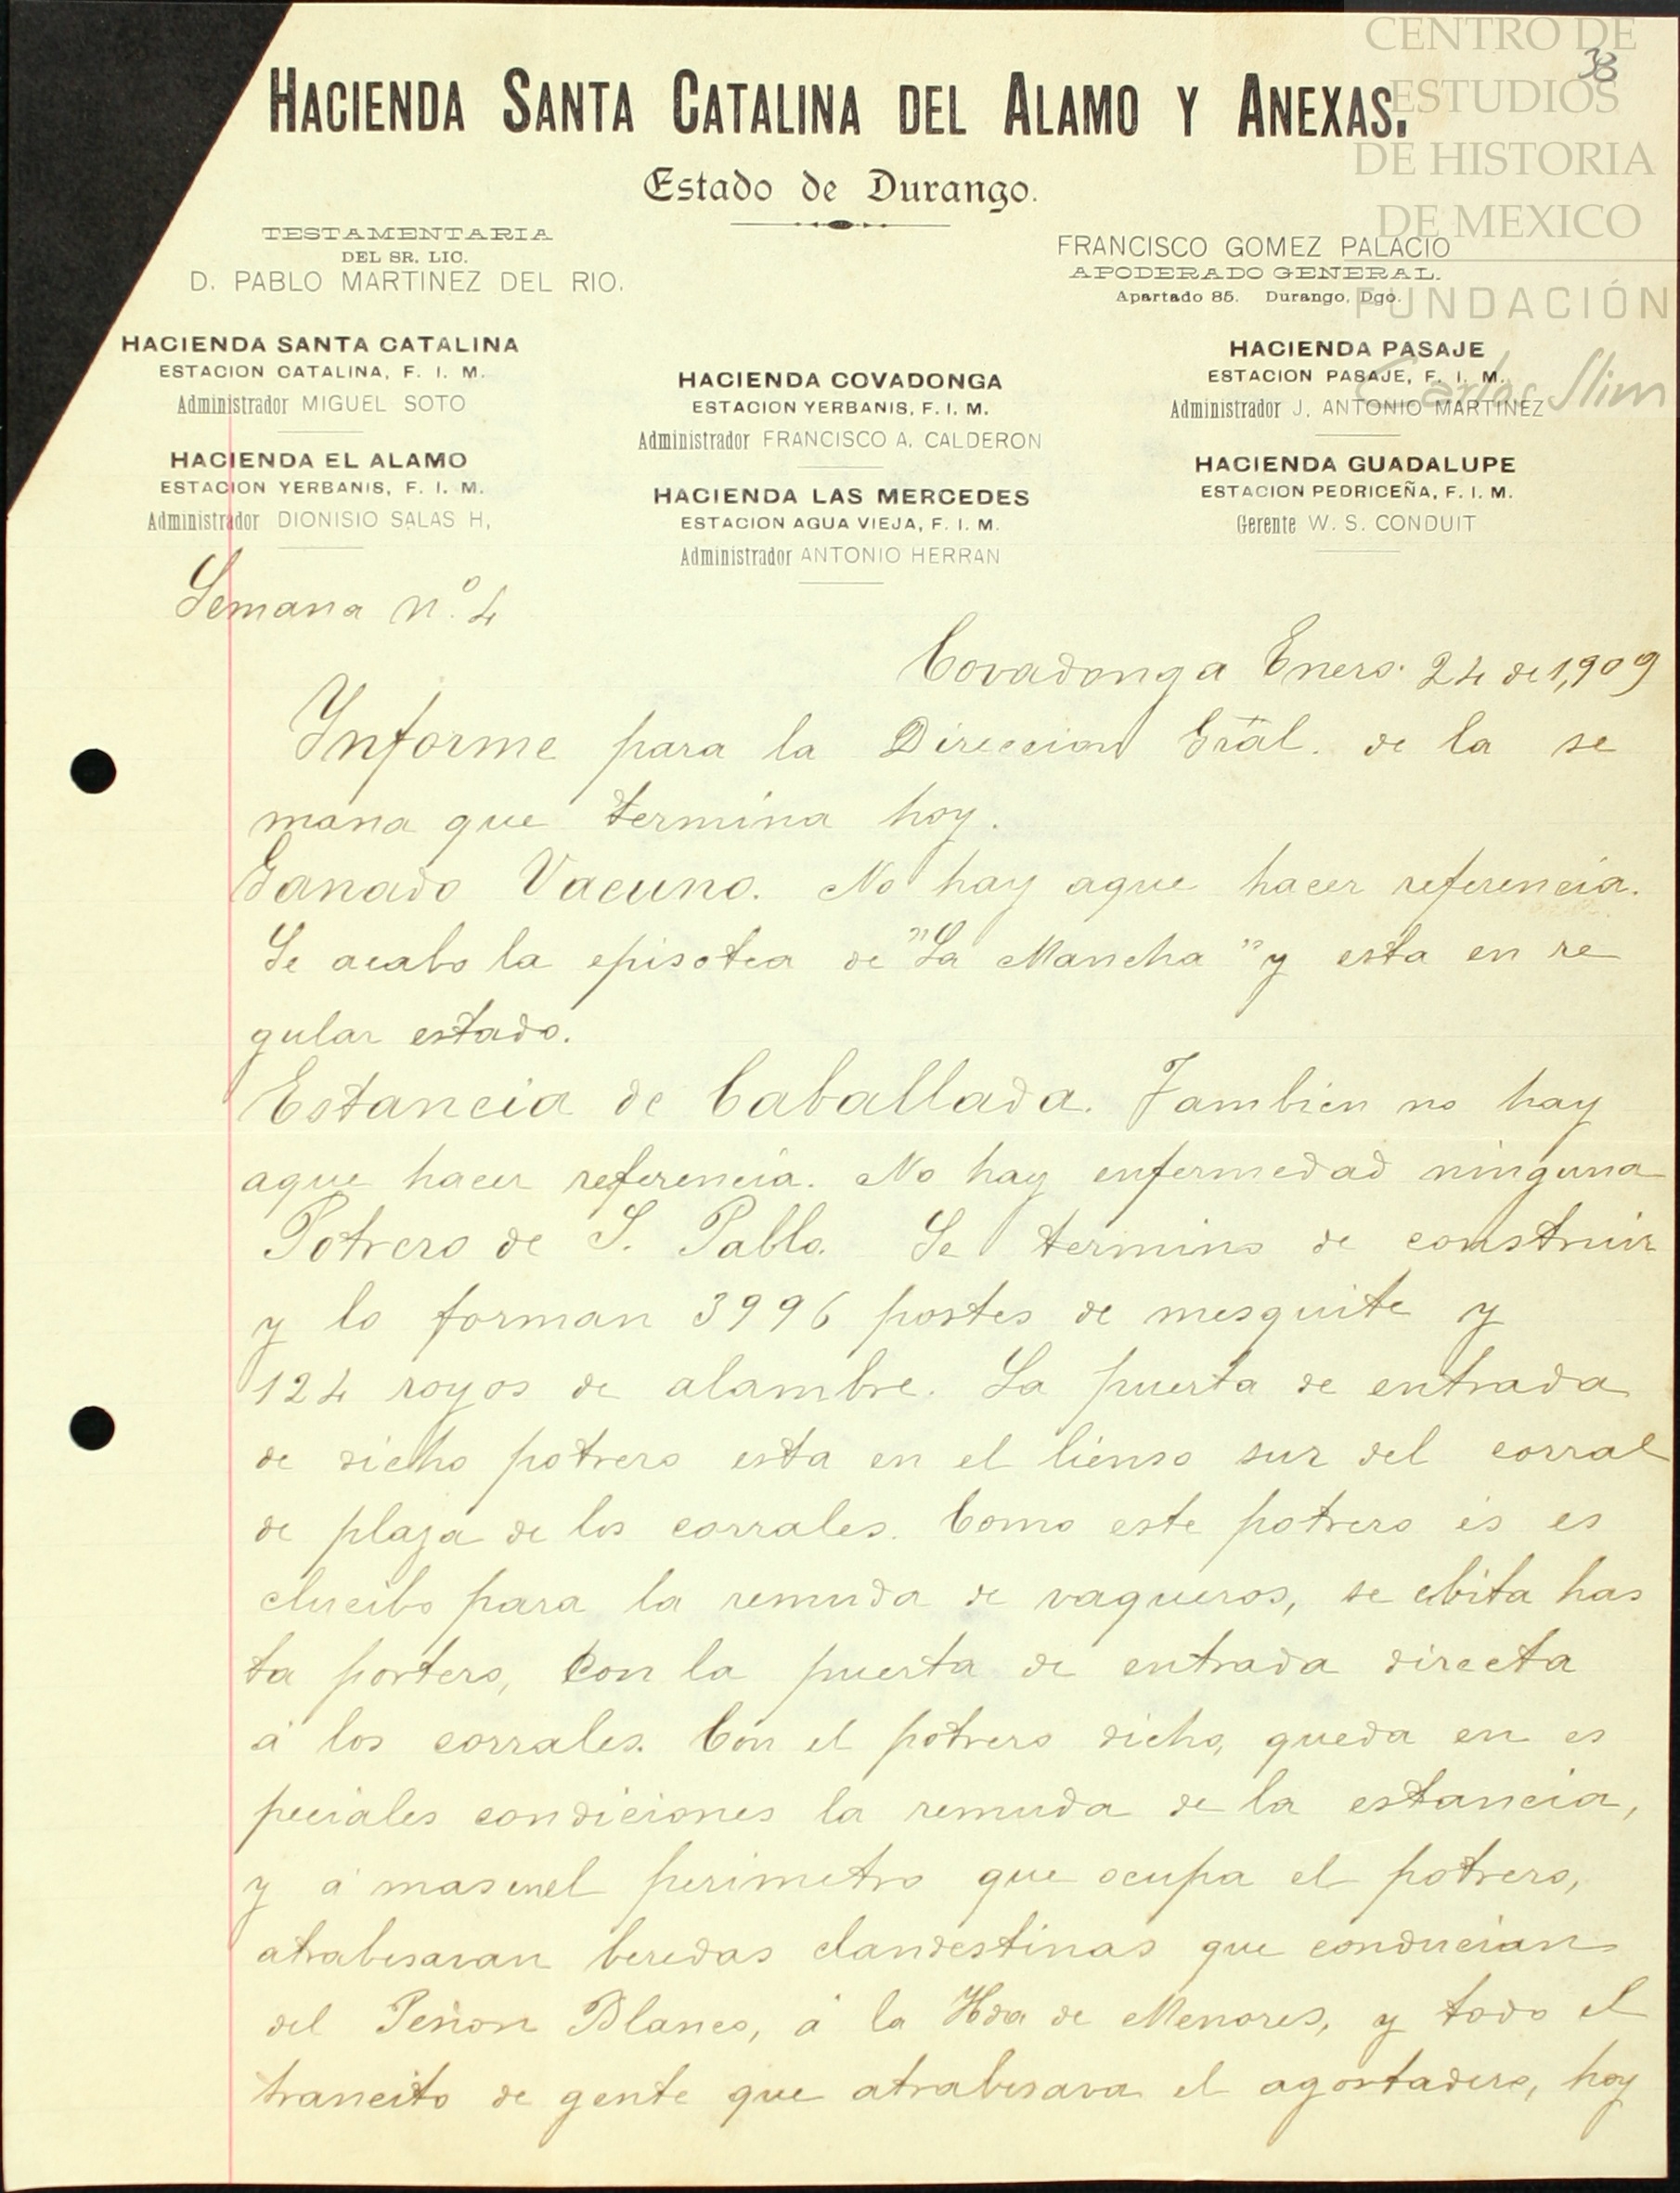 CENTRO DE
ESTUDIOS
DE HISTORIA
DE MEXICO
FUNDACIÓN
Carlos Slim
38
HACIENDA SANTA CATALINA DEL ALAMO Y ANEXAS.
Estado de Durango.
TESTAMENTARIA
DEL SR. LIC.
D. PABLO MARTINEZ DEL RIO.
FRANCISCO GOMEZ PALACIO
APODERADO GENERAL.
Apartado 85. Durango, Dgo.
HACIENDA SANTA CATALINA
ESTACION CATALINA, F. I. M.
Administrador MIGUEL SOTO
HACIENDA EL ALAMO
ESTACION YERBANIS, F. I. M.
Administrador DIONISIO SALAS H,
HACIENDA COVADONGA
ESTACION YERBANIS, F. I. M.
Administrador FRANCISCO A. CALDERON
HACIENDA LAS MERCEDES
ESTACION AGUA VIEJA, F. I. M.
Administrador ANTONIO HERRAN
HACIENDA PASAJE
ESTACION PASAJE, F. I. M.
Administrador J. ANTONIO MARTINEZ
HACIENDA GUADALUPE
ESTACION PEDRICEÑA, F. I. M.
Gerente W. S. CONDUIT
Semana nº. 4
Covadonga Enero. 24 de 1,909
Informe para la Direccion Gral. de la se
mana que termina hoy.
Ganado Vacuno. No hay aque hacer referencia.
Se acabo la episotea de "La Mancha" y esta en re
gular estado.
Estancia de Caballada. Tambien no hay
aque hacer referencia. No hay enfermedad ninguna
Potrero de S. Pablo. Se termino de construir
y lo forman 3996 postes de mesquite y
124 royos de alambre. La puerta de entrada
de dicho potrero esta en el lienso sur del corral
de plaza de los corrales. Como este potrero es es
clucibo para la remuda de vaqueros, se ebita has
ta portero, con la puerta de entrada directa
á los corrales. Con el potrero dicho, queda en es
peciales condiciones la remuda de la estancia,
y á mas enel perimetro que ocupa el potrero,
atrabesavan beredas clandestinas que conducian
del Peñon Blanco, á la Hda de Menores, y todo el
trancito de gente que atrabesava el agostadero, hoy